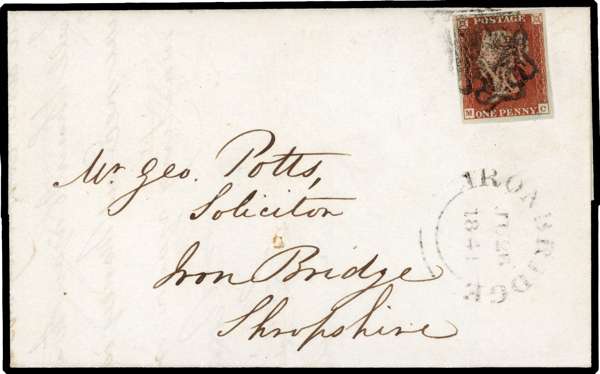 POSTAGE
ONE PENNY
M C
Mr. Geo. Potts,
Solicitor
Iron Bridge
Shropshire
IRONBRIDGE